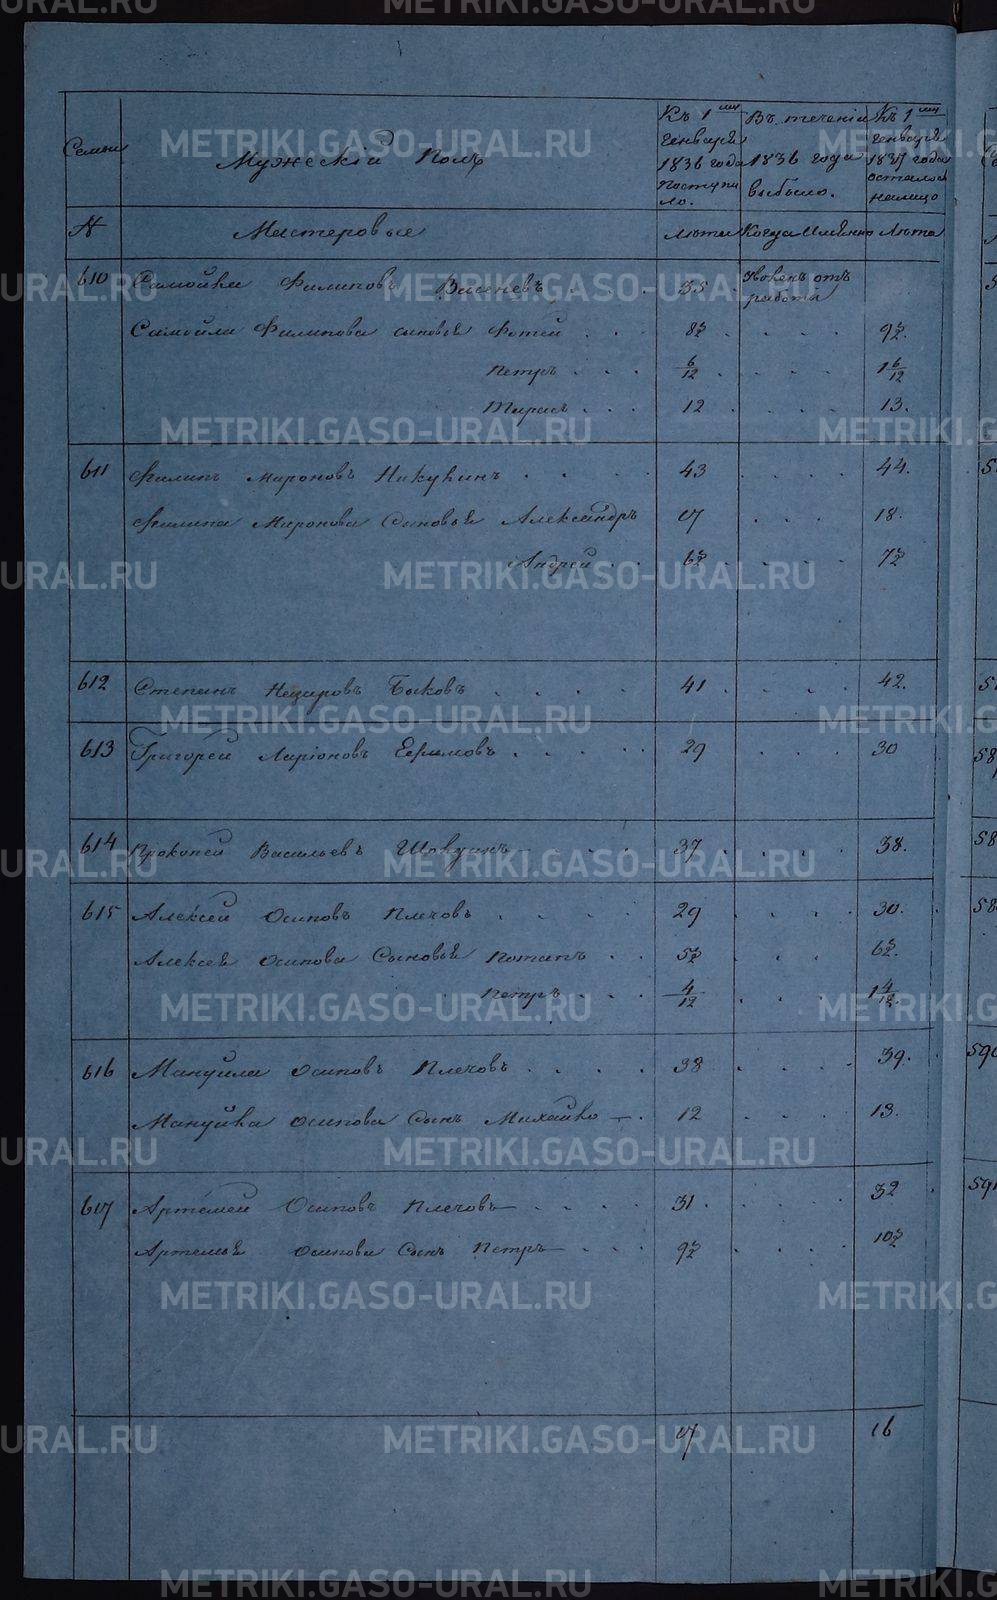 METRIKI.GASO-URAL.RU
Семьи
Мужескій Полъ
Къ 1 ген­варя 1836 года поступило.
Въ теченіи 1836 года выбыло.
Къ 1 генваря 1837 года осталось налицо
№ Мастеровые Люта Когда Именно Люта
610 Самойла Филиповъ Васеневъ 35 Уволенъ отъ работы
Самойла Филипова сыновья Фотей 8½ 9½.
Петръ 6/12 1 6/12
Тарасъ 12 13.
611 Филипъ Мироновъ Никукинъ 43 44.
Филипа Миронова Сыновья Александръ 17 18.
Андрей 6½ 7½
612 Степанъ Назаровъ Быковъ 41 42.
613 Григорей Ларіоновъ Ефимовъ 29 30
614 Прокопей Васильевъ 37 38.
615 Алексей Осиповъ Плечовъ 29 30.
Алексея Осипова Сыновья Потапъ 5½ 6½.
Петръ 4/12 1 4/12.
616 Мануйла Осиповъ Плечовъ 38 39.
Мануйла Осипова Сынъ Михайло 12 13.
617 Артемей Осиповъ Плечовъ 31. 32
Артемья Осипова Сынъ Петръ 9½ 10½
17 16